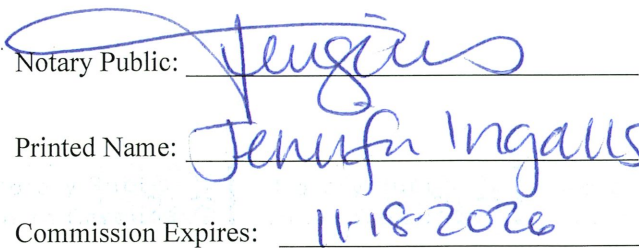 Notary Public:
Printed Name: Jennifer Ingalls
Commission Expires: 11-18-2026